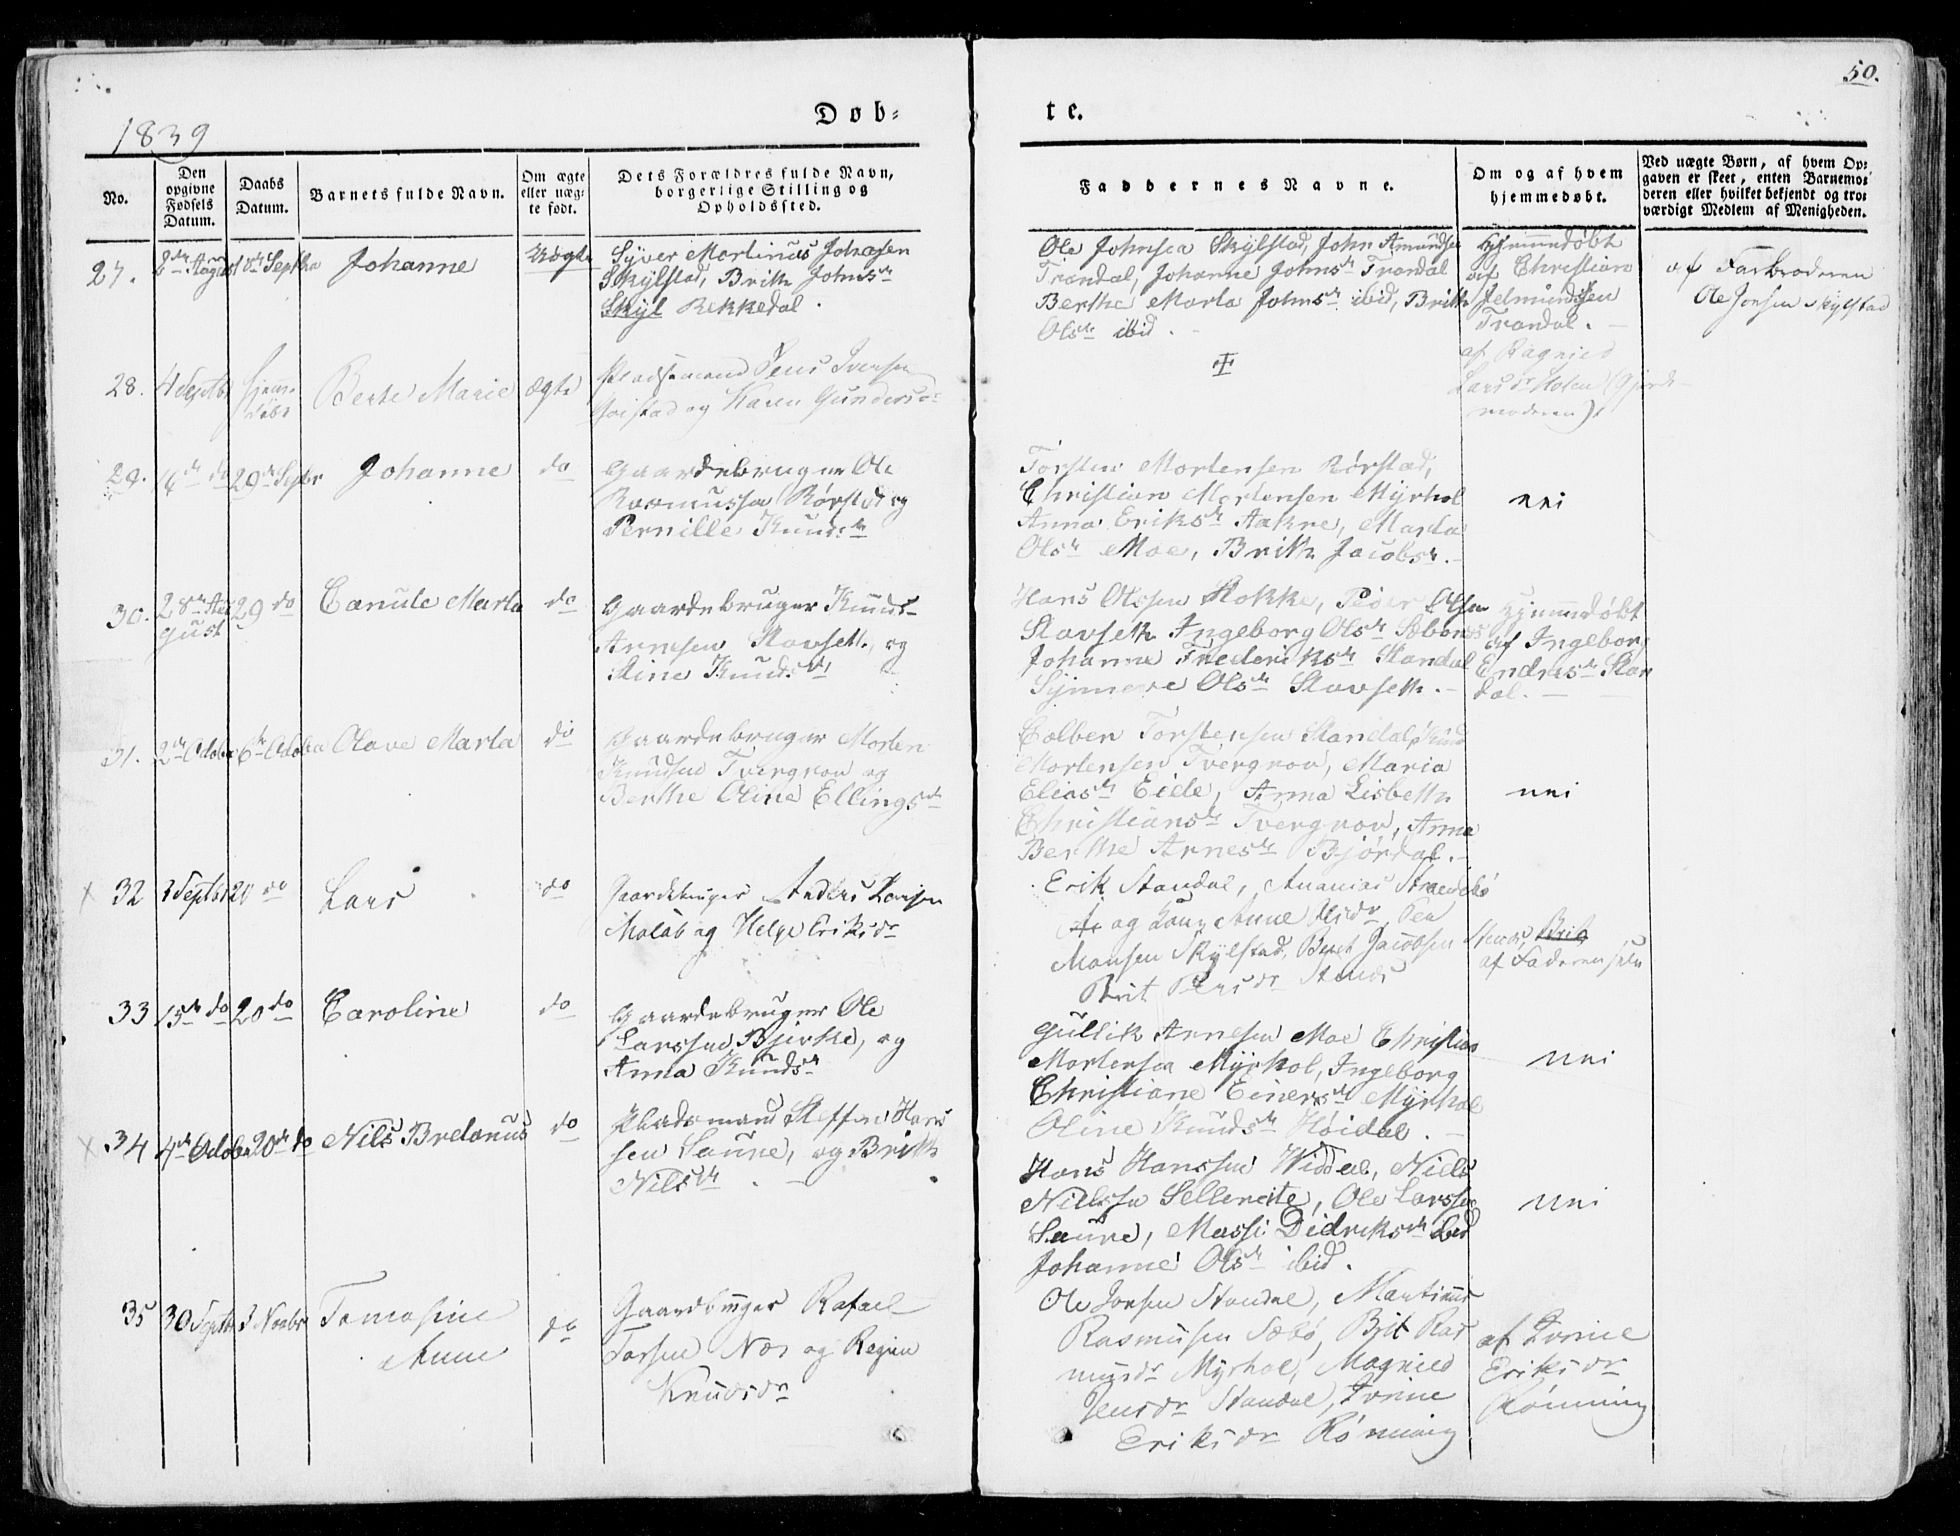 50.
Døb-
te.
1839
No.
Den
opgivne
Fødsels
Datum.
Daabs
Datum.
Barnets fulde Navn.
Om ægte
eller uæg-
te født.
Dets Forældres fulde Navn,
borgerlige Stilling og
Opholdssted.
Faddernes Navne.
Om og af hvem
hjemmedøbt.
Ved uægte Børn, af hvem Op-
gaven er skeet, enten Barnemo-
deren eller hvilket bekjendt og tro-
værdigt Medlem af Menigheden.
27.
Johanne
Uægte
Syver Martinus Johnsen
Skylstad, Brith Johnsdr
Skyl Rekkedal.
Ole Johnsen Skylstad, John Amundsen
Trandal, Johanne Johnsdr Trandal
Berthe Marta Johnsdr ibid, Brith
Olsdr ibid.
Hjemmedøbt
af Christian
Trandal.
af Farbroderen
Ole Jonsen Skylstad
28.
4 Septbr
Hjemme
døbt
Berte Marie
ægte
Pladsemand Jens Iversen
og Karen Gundersdr
af Ragnied
Larsdr Holen (Gjord-
moderen).
29.
16de do
29de Septbr
Johanne
do
Gaardebruger Ole
Rasmussen Rørstad og
Pernille Knudsdr
Torsten Mortensen Rørstad,
Christian Mortensen Myrhol
Anna Eriksdr Aakre, Marta
Olsdr Moe, Brith Jacobsdr.
nei
30.
28de Au
gust
29 do
Canute Marta
do
Gaardebruger Knud
Arnesen Stavseth, og
Stine Knudsdr
Hans Olssen Stokke, Peder Olsen
Stavseth Ingeborg Olsdr Sæbønes
Johanna Frederiksdr Standal
Synneve Olsdr Stavseth.
Hjemmedøbt
af Ingeborg
Endresdr Stan
dal.
31.
2de Octobr
6te Octobr
Olave Marta
do
Gaardebruger Morten
Knudsen Tvergrov og
Berthe Oline Ellingsdr
Colben Torstensen Standal, Knud
Mortensen Tvergrov, Maria
Eliasdr Eide, Anna Lisbeth
Christiansdr Tvergrov, Anna
Berthe Arnesdr Bjørdal.
nei
x 32
3 Septbr
20 do
Lars
do
Gaardebruger Anders Larsen
Maläb og Helge Eriksdr
Erik Standal, Ananias
og Anne Olsdr
Monsen Skylstad, Berit Jacobsen
Brit Persdr
af Faderen selv
33
15de do
20 do
Caroline
do
Gaardebruger Ole
Larssen Bjerke, og
Anna Knudsdr
Gullik Arnesen Moe Christian
Mortensen Myrhol, Ingeborg
Christiane Einersdr Myrhol
Oline Knudsdr Høidal.
nei
x 34
4de Octobr
20de do
Nils Bretanus
do
Pladsmand Steffen Hans
sen Saure, og Brith
Nilsdr
Hans Hanssen Widdal, Niels
Nielssen Sellereite, Ole Larssen
Saure, Massi Didriksdr ibid
Johanne Olsdr ibid.
nei
35
30 Septbr
3 Novbr
Tomasine
Anne
do
Gaardbruger Rafael
Torsen Næs og Regine
Knudsdr
Ole Jonsen Standal, Martinus
Rasmusen Sæbø, Brit Ras
musdr Myrhol, Magnild
Jensdr Standal, Ivrine
Eriksdr Rønning
af Ivrine
Eriksdr
Rønning